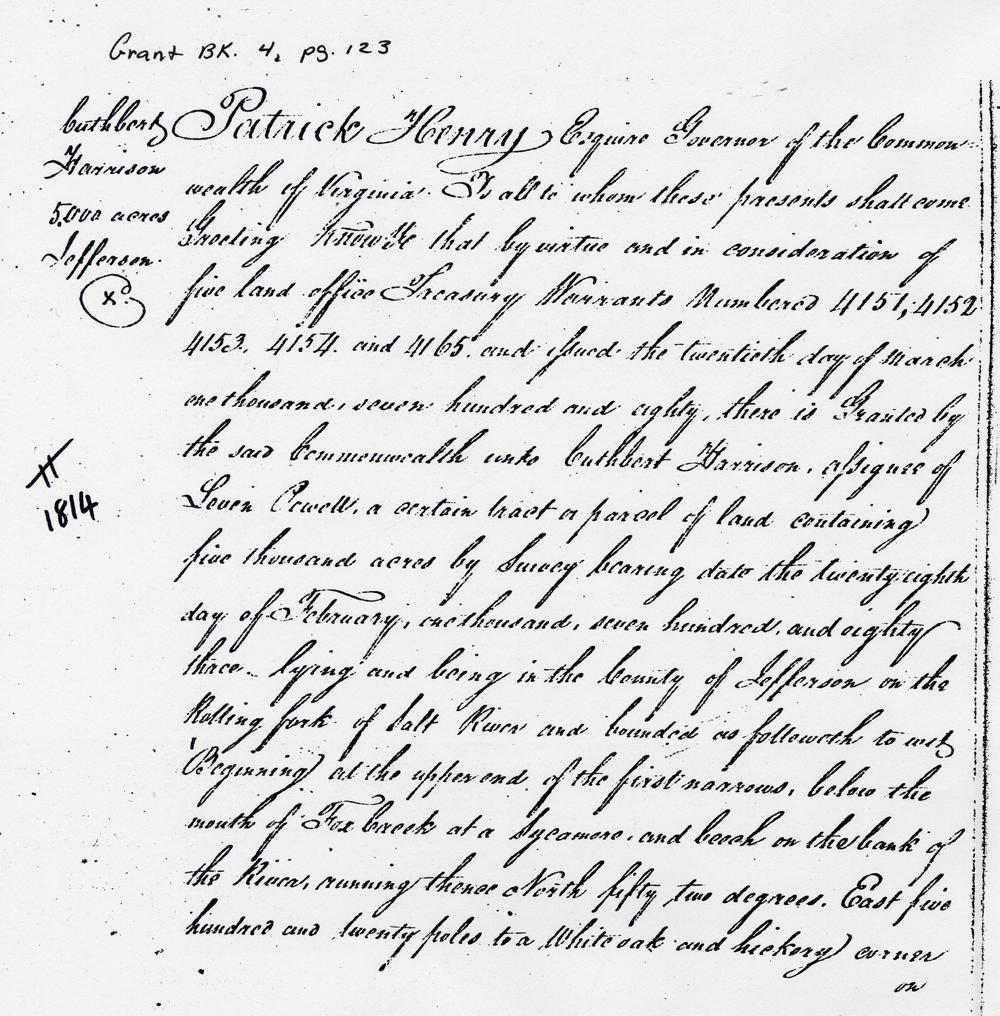 Grant BK. 4, pg. 123
Cuthbert
Harrison
5,000 acres
Jefferson.
x
Patrick Henry Esquire Governor of the Common
wealth of Virginia To all to whom these presents shall come
Greeting Know Ye that by virtue and in consideration of
five land office Treasury Warrants Numbered 4151, 4152
4153. 4154. and 4165. and issued the twentieth day of March
one thousand, seven hundred and eighty, there is Granted by
the said Commonwealth unto Cuthbert Harrison, assignee of
Leven Powell, a certain tract or parcel of land containing
five thousand acres by Survey bearing date the twenty eighth
day of February, one thousand, seven hundred, and eighty
three - lying and being in the County of Jefferson on the
Rolling fork of Salt River and bounded as followeth to wit
Beginning at the upper end of the first narrows, below the
mouth of Fox Creek at a Sycamore, and beech on the bank of
the River, running thence North fifty two degrees. East five
hundred and twenty poles to a White oak and hickory corner
on
1814